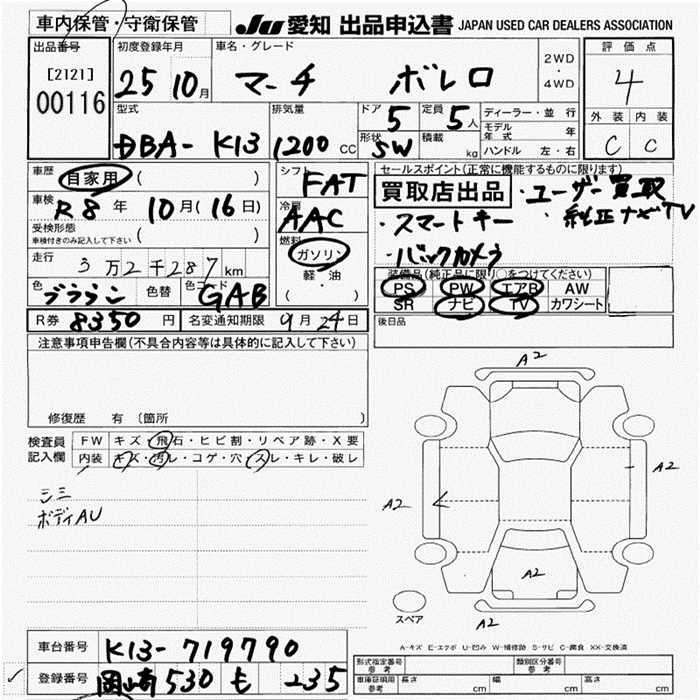 車内保管・守衛保管
JU 愛知 出品申込書 JAPAN USED CAR DEALERS ASSOCIATION
出品番号 初度登録年月 車名・グレード 評価点
[2121] 25 10月 マーチ ボレロ 2WD・4WD 4
00116
型式 排気量 ドア 5 定員 5人 ディーラー・並行 外装 内装
モデル年式 年
DBA- K13 1200 CC 形状 SW 積載 kg ハンドル 左・右 C C
車歴 自家用 ( ) シフト FAT セールスポイント(正常に機能するものに限ります)
買取店出品 ・ユーザー買取
車検 R8年 10月(16日) 冷房 AAC ・スマートキー ・純正ナビTV
受検形態 ( )
車検付きのみ記入して下さい
燃料 ガソリン ・バックカメラ
走行 3万2千287km 軽・油 装備品(純正品に限り○をつけてください)
色 ブラウン 色替 色コード GAB ( ) PS PW エアB AW
SR ナビ TV カワシート
R券 8350円 名変通知期限 9月24日 後日品
注意事項申告欄(不具合内容等は具体的に記入して下さい)
A2
修復歴 有 (箇所 )
検査員 FW キズ・飛石・ヒビ割・リペア跡・X要
記入欄 内装 キズ・汚レ・コゲ・穴・スレ・キレ・破レ
A2
A2
シミ
ボディAU
A2
スペア
A2
A-キズ E-エクボ U-凹み W-補修跡 S-サビ C-腐食 XX-交換済
車台番号 K13-719790
形式指定番号 参考 類別区分番号 参考
登録番号 岡崎 530 も 235
車庫証明用 参考 長さ cm 幅 cm 高さ cm